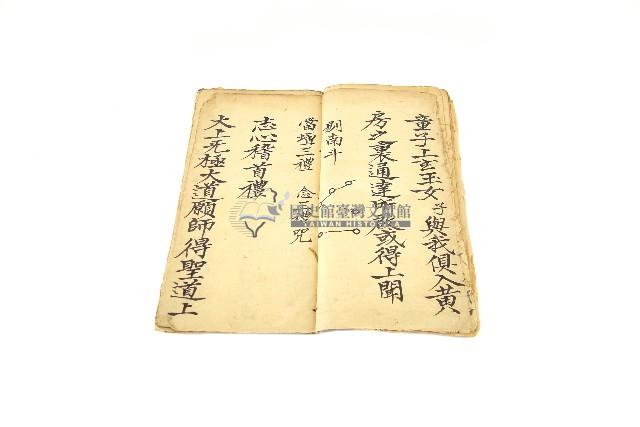 童子上玄玉女子與我俱入黃
房之裏通達感或得上聞
別南斗
當壇三禮 念 咒
志心稽首禮
大上无極大道願師得聖道上
國史館臺灣文獻館
TAIWAN HISTORICA